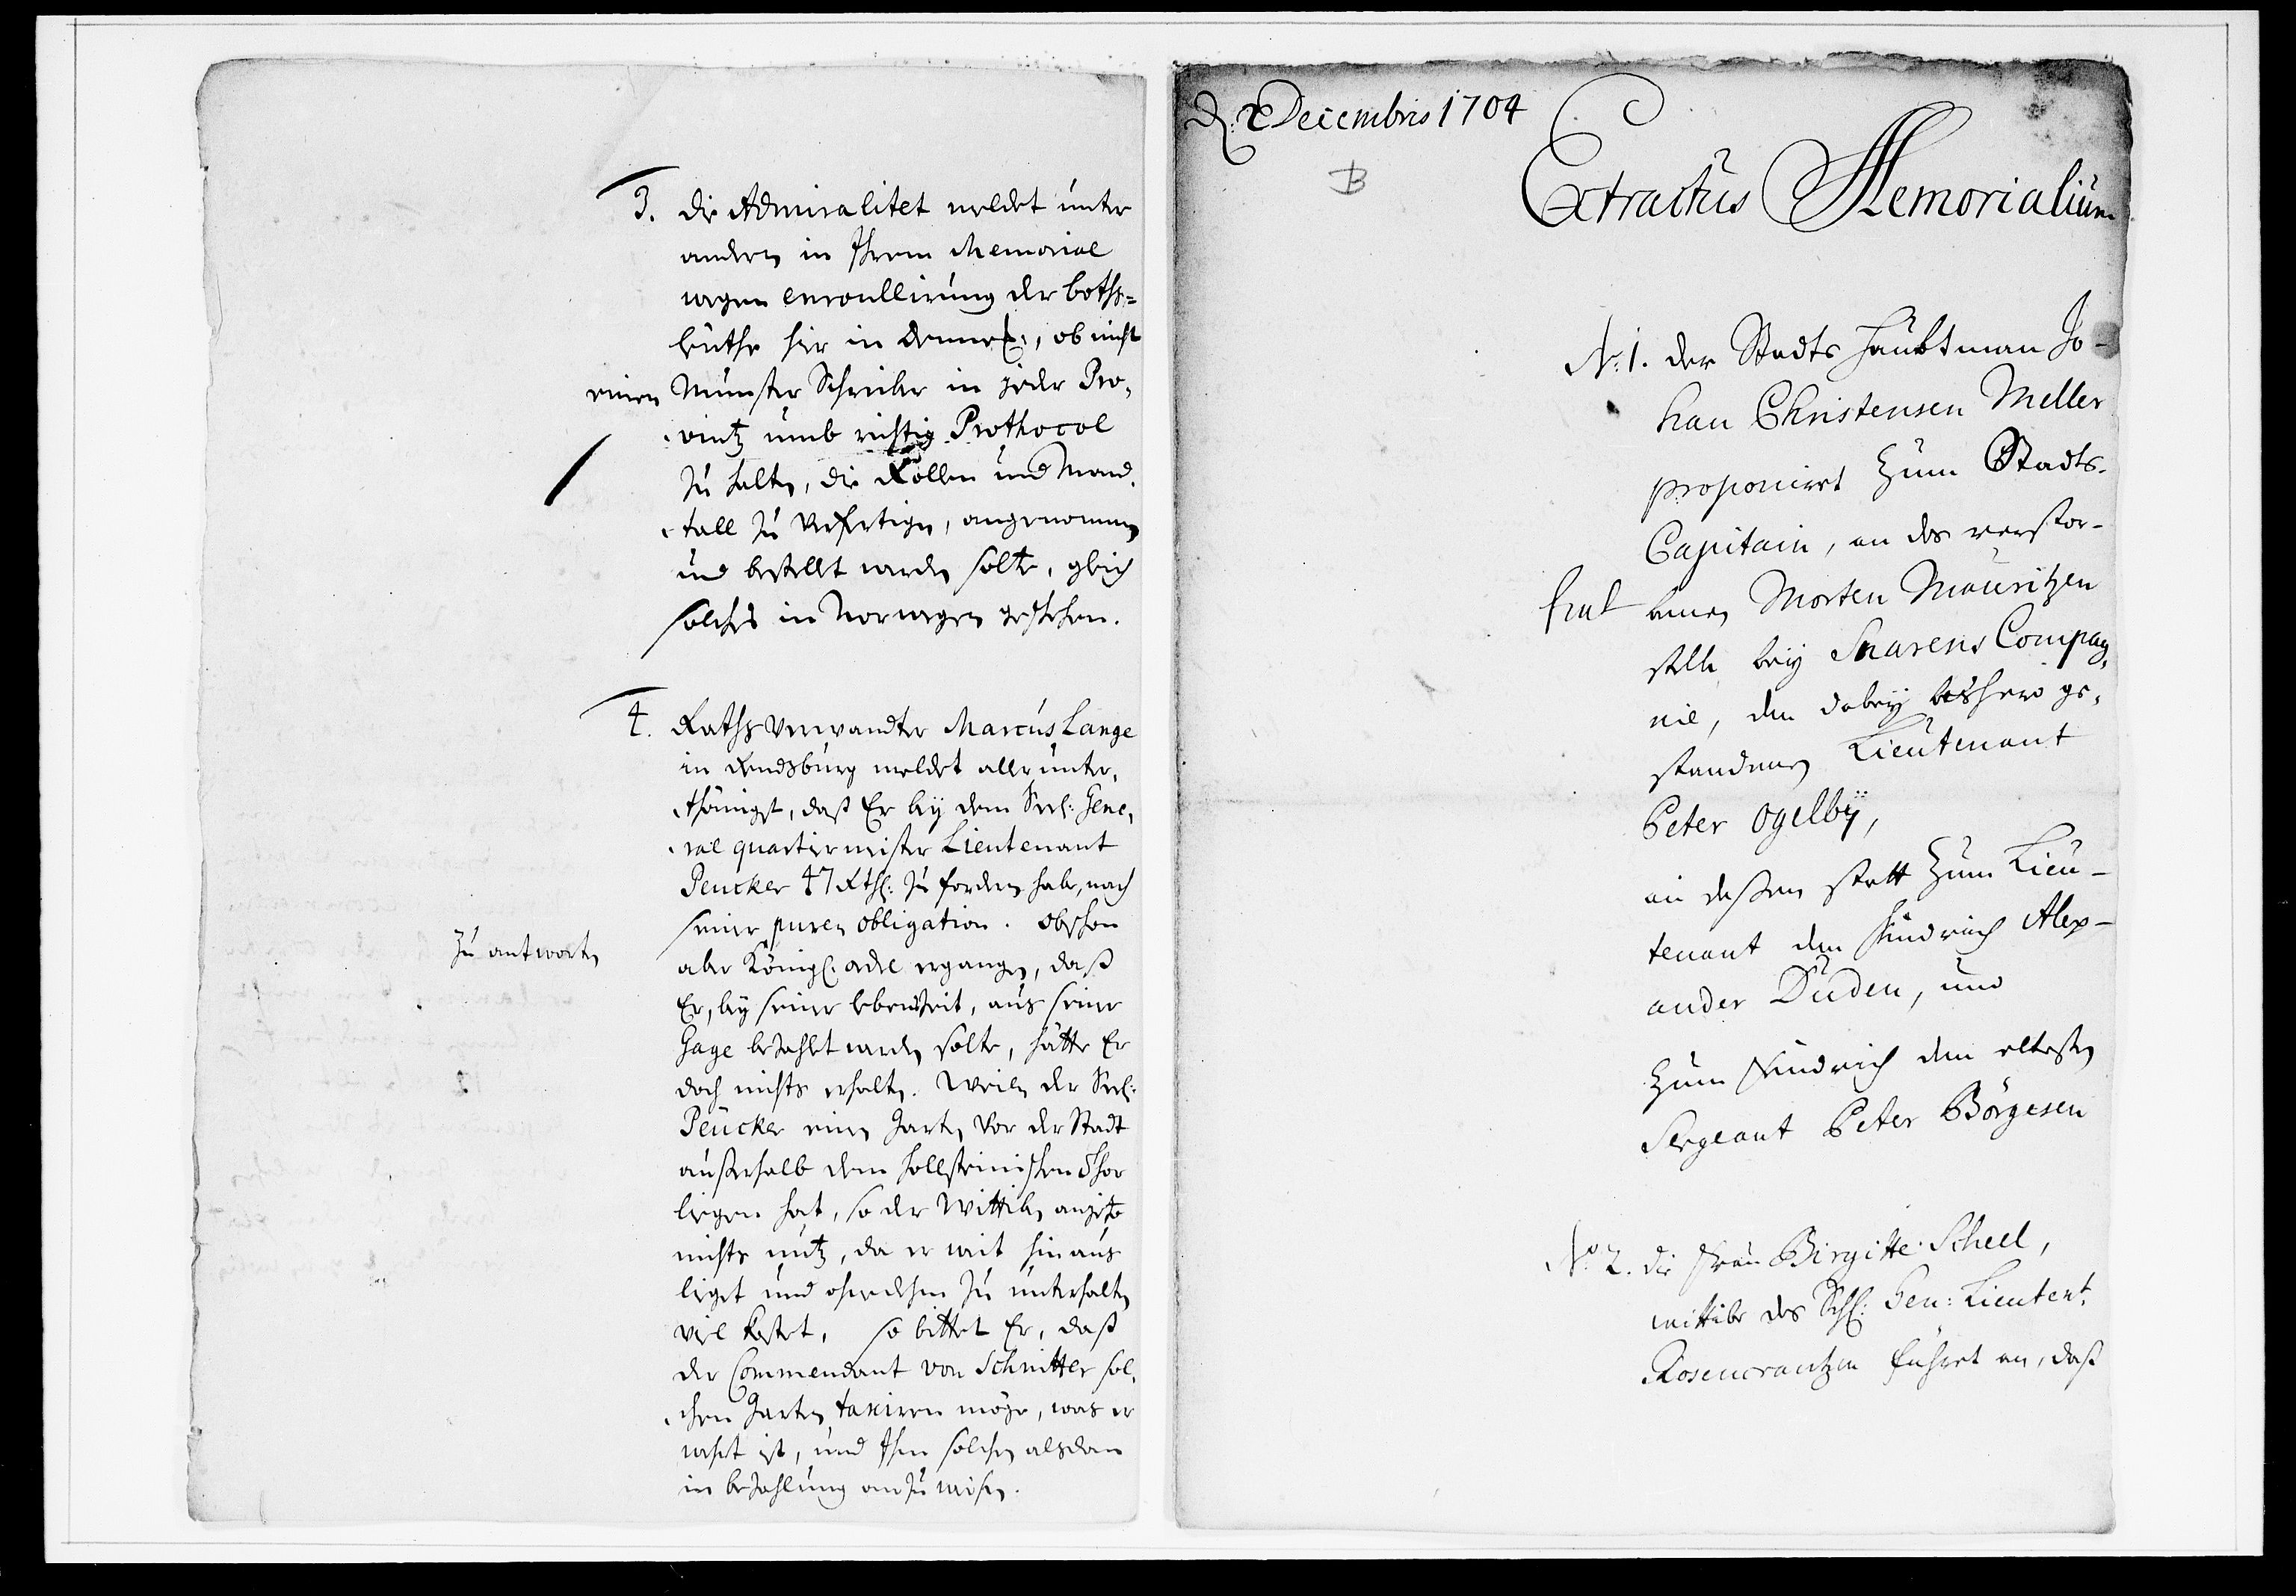 3. die Admiralitet meldet unter
andern in Ihrem Memorial
wegen enroullirung der boths=
leuthe hir in Dennem:, ob nicht
einen Munster Schreiber in jeder Pro-
vintz umb richtig Prothocol
zu halten, die Rollen und Mand-
tall zu verfertigen, angenommen
und bestellt werden solte, gleich
solches in Norwegen geschehen.
4. Raths Verwandter Marcus Lange
in Rendsburg meldet aller unter-
thänigst, daß Er bey dem Seel: Gene-
ral quartiermeister Lieutenant
Peucker 47 Rthl: zu fordern habe, nach
seiner puren obligation. Obschon
zu antworten
aber Königl. ordre ergangen, daß
Er, bey seiner lebenszeit, aus seiner
Gage bezahlt werden solte, hätte Er
doch nichts erhalten. Weilen der Seel:
Peucker einen Garten vor der Stadt
außerhalb dem hollsteinischen Thor
liegen hat, so der Wittiben anjetzo
nichts nutz, da er weit hinaus
lieget und ohnedehm zu unterhalten
viel kostet, so bittet Er, daß
der Commendant von Schnitter sol-
chen Garten taxiren möge, was er
wehrt ist, und Ihm solchen alsdan
in bezahlung anzuweisen.
Decembris 1704
B
Extractus Memorialium
No: 1. Der Stadts Haubtman Jo-
han Christensen Meller
proponirt zum Stadts-
Capitain, an des verstor-
fiat benen Morten Mauritzen
stelle bey Snarens Compag-
nie, den dabey bishero ge-
standenen Lieutenant
Peter Ogelby,
an deßen statt zum Lieu-
tenant den Fendrich Alex-
ander Duden, und
zum Fendrich den eltesten
Sergeant Peter Börgesen
No 2. die Frau Birgitte Scheel,
wittibe des Sehl: Gen: Lieutent.
Rosencrantzen führet an, daß